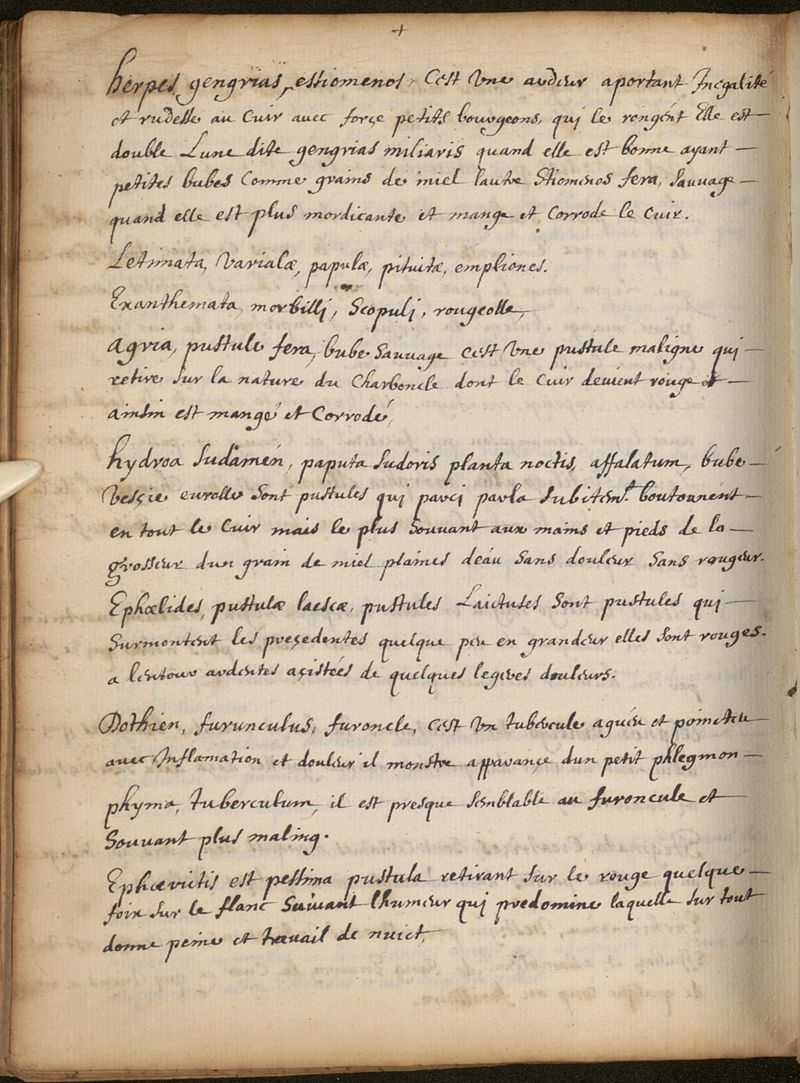 +
herpes, gengrias, estiomenos, Cest Une ardeur aportant Inegalité
et rudesse au Cuir avec force petits bourgeons, qui le rongent Elle est
double Lune dite gengrias miliaris quand elle est bonne ayant
petites bubes Comme grains de miel lautre Stiomenos fera, Sauvage
quand elle est plus mordicante et mange et Corrode le Cuir.
Letinata, Varialæ, papulæ, pituitæ, empliones.
Exanthemata, morbilli, Scopuli, rougeolle,
Agria, pustule fera, bube Sauvage Cest Une pustule maligne qui
retire Sur la nature du Charboncle dont le Cuir devient rouge et
ainsin est mangé et Corrodé,
hydroa Sudamen, paputa Sudoris planta noctis, affalatum, bube
Vesçie eurolle Sont pustules qui parci parla Subitemt boutonnent
en tout le Cuir mais le plus Souvant aux mains et pieds de la
grosseur dun grain de miel plaines deau Sans douleur Sans rougeur.
Ephœlides, pustulæ laescæ, pustules Laictuses Sont pustules qui
Surmontent les preçedentes quelque peu en grandeur elles Sont rouges.
a lentour ardentes açistées de quelques legeres douleurs.
Dothien, furunculus, furoncle, Cest Un tubercule aguëu et poinctu
avec Inflamation et douleur il monstre apparançe dun petit phlegmon
phyma, tuberculum, il est presque Semblable au furoncule et
Souvant plus maling.
Ephœvictis est pessima pustula retirant Sur le rouge quelque
foix Sur le flanc Suivant lhumeur qui predomine laquelle Sur tout
donne peine et travail de nuict,